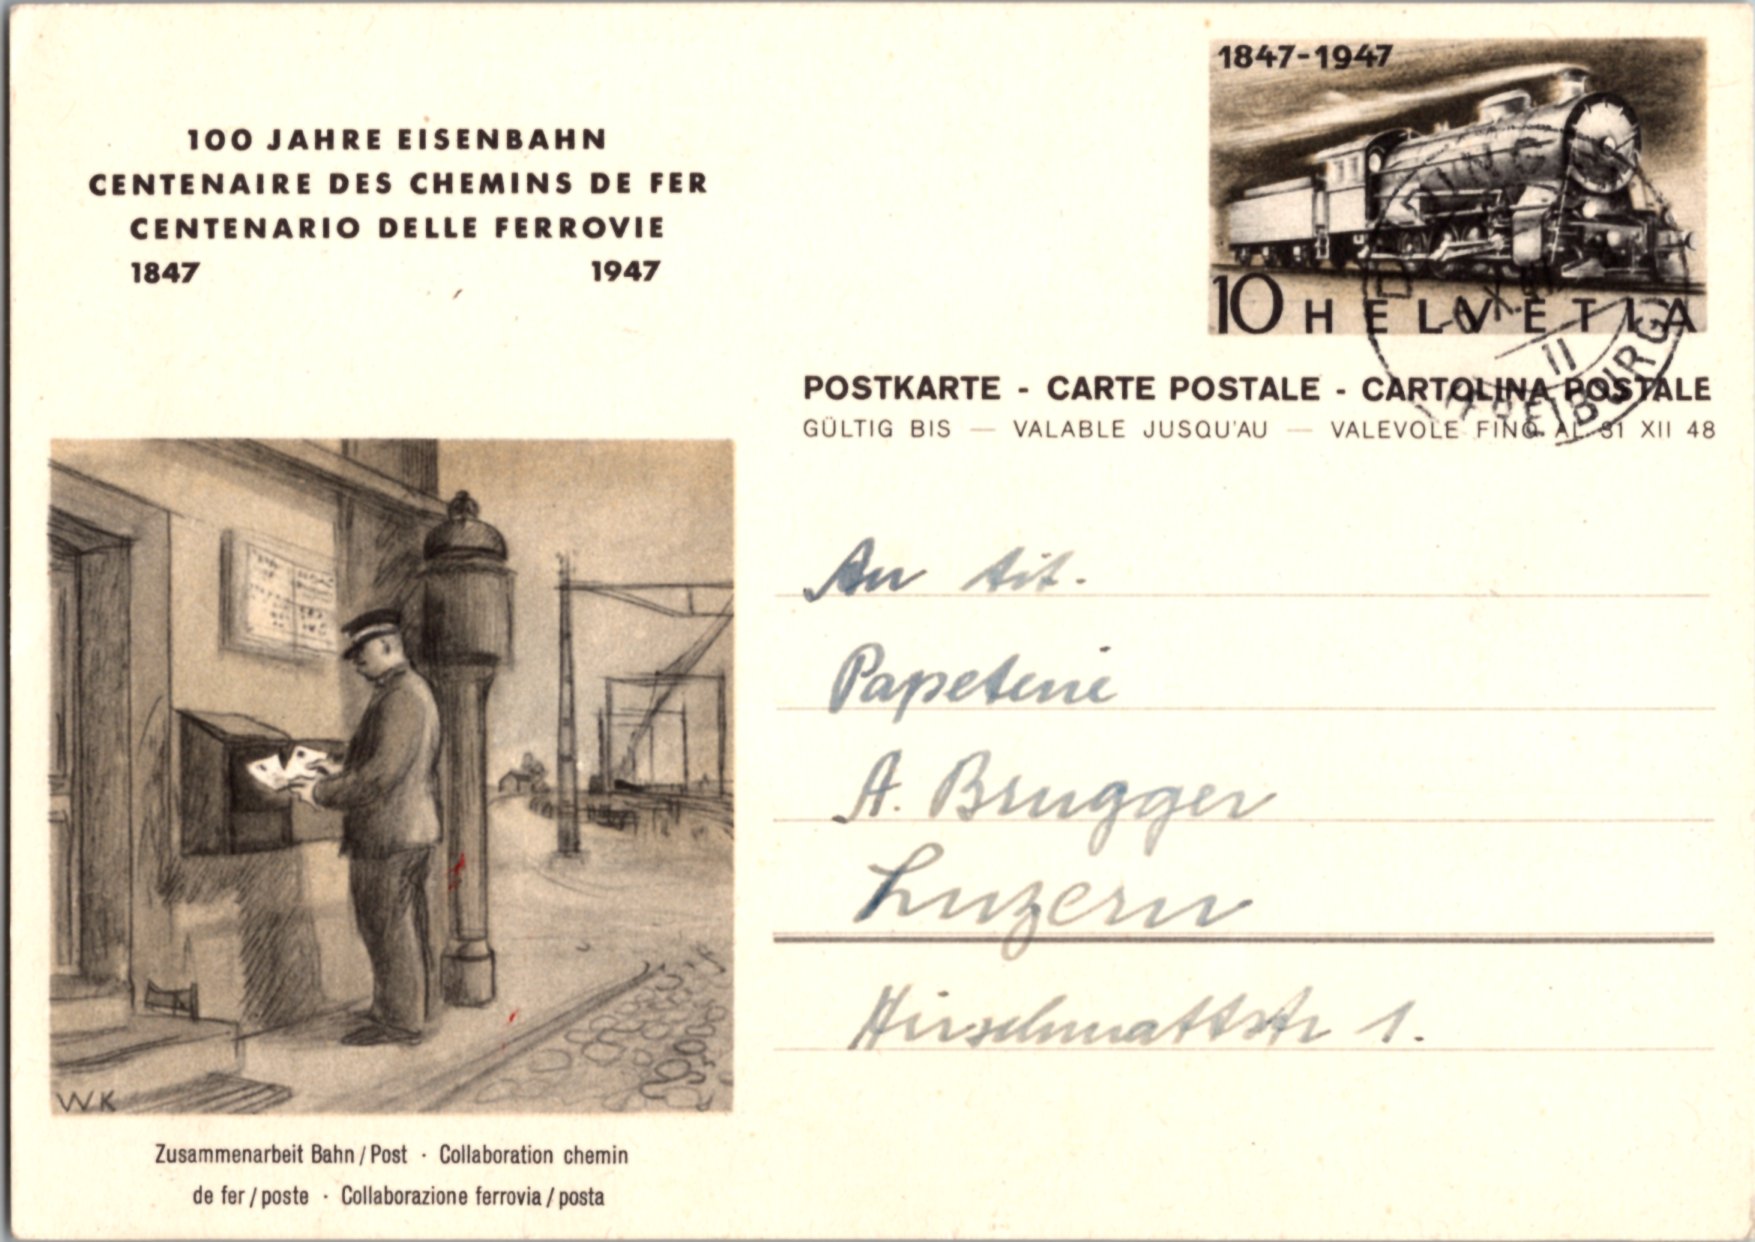 1847-1947
100 JAHRE EISENBAHN
CENTENAIRE DES CHEMINS DE FER
CENTENARIO DELLE FERROVIE
1847 1947
10 HELVETIA
II
POSTKARTE - CARTE POSTALE - CARTOLINA POSTALE
GÜLTIG BIS — VALABLE JUSQU'AU — VALEVOLE FINO AL 31 XII 48
An tit.
Papeterie
A. Brugger
Luzern
Hirschmattstr 1.
WK
Zusammenarbeit Bahn/Post · Collaboration chemin
de fer/poste · Collaborazione ferrovia/posta